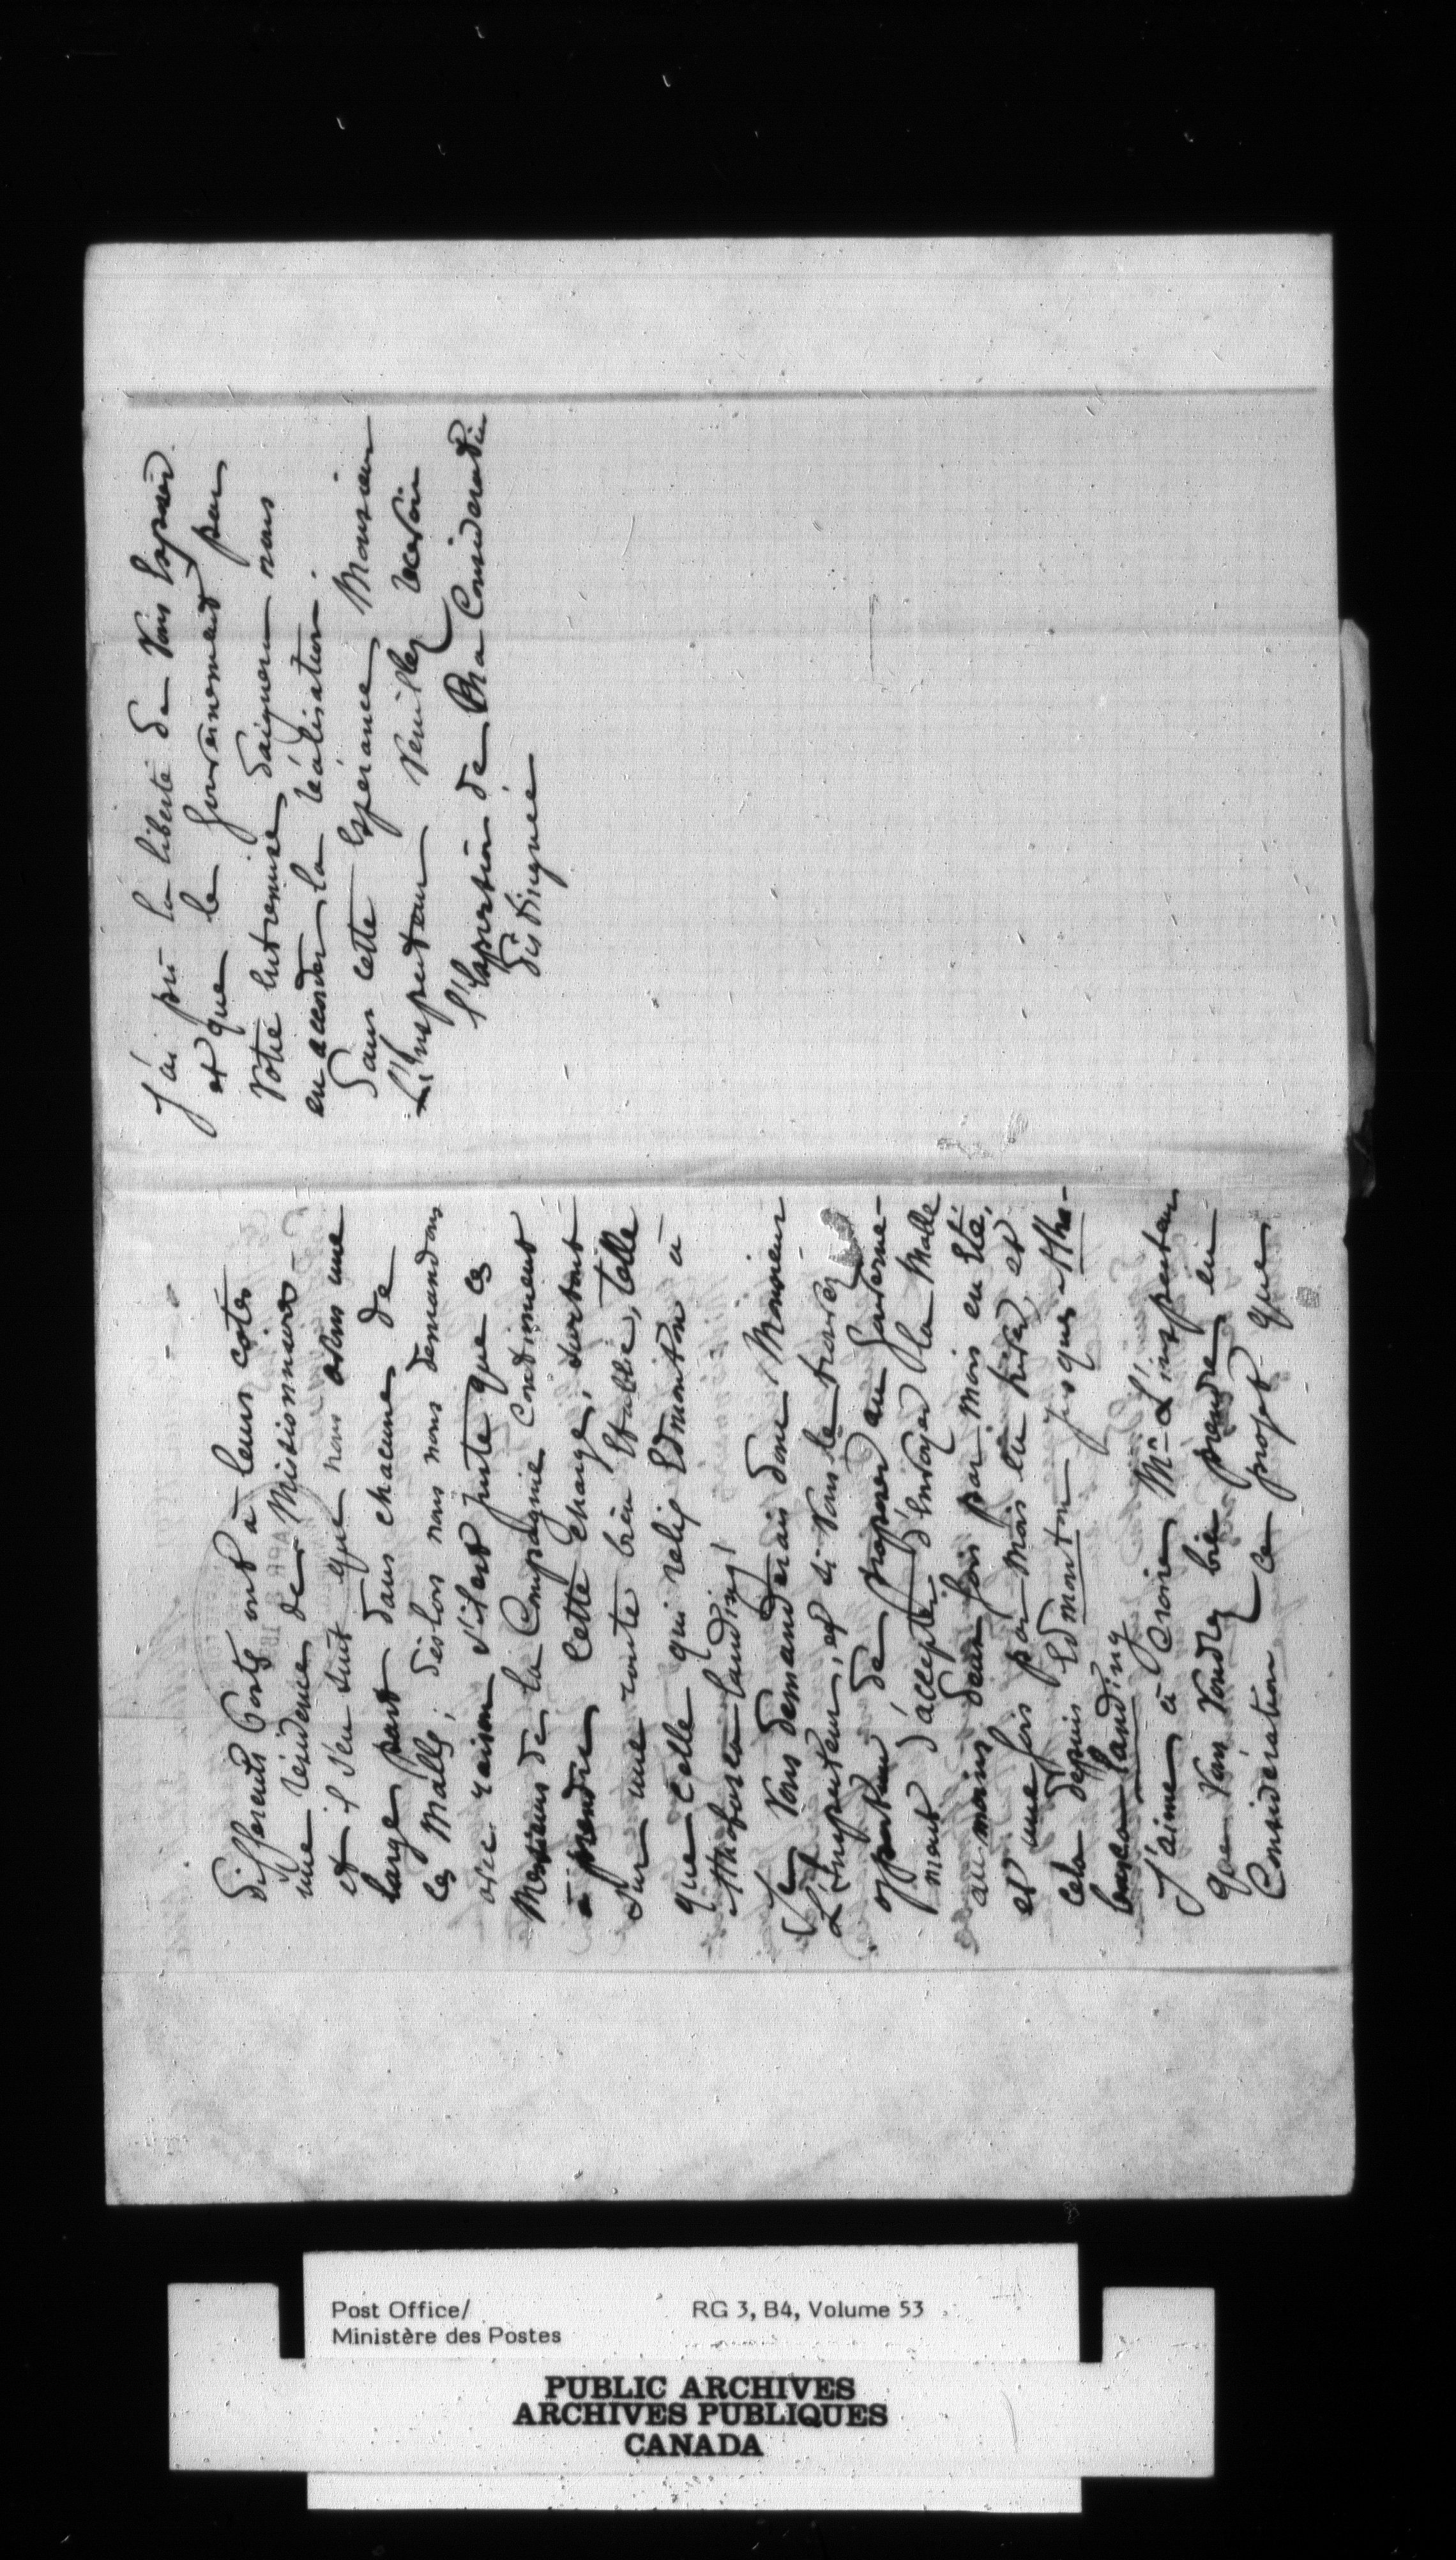 différents Postes ont à leurs côtés
une résidence de Missionnaires
et il s'en suit que nous avons une
large part dans chacune de
ces Malles; dèslors nous nous demandons
avec raison s'il est juste que ces
Messieurs de la Compagnie continuent
à prendre cette charge, surtout
sur une route bien établie, telle
que celle qui relie Edmonton à
Athabasca Landing!
Je vous demanderais donc Monsieur
L'Inspecteur, et si vous le trouvez
opportun de proposer au Gouverne-
ment d'accepter d'envoyer la Malle
au moins deux fois par mois en Eté,
et une fois par mois en hiver, et
cela depuis Edmonton jusques Atha-
basca Landing
J'aime à croire Mr L'inspecteur
que vous voudrez bien prendre en
Considération ce projet que
J'ai pris la liberté de vous exposer
et que le Gouvernement par
votre entremise daignera nous
en accorder la réalisation.
Dans cette espérance, Monsieur
L'Inspecteur veuillez recevoir
l'expression de Ma Considération
distinguée
Post Office/
Ministère des Postes
RG 3, B4, Volume 53
PUBLIC ARCHIVES
ARCHIVES PUBLIQUES
CANADA